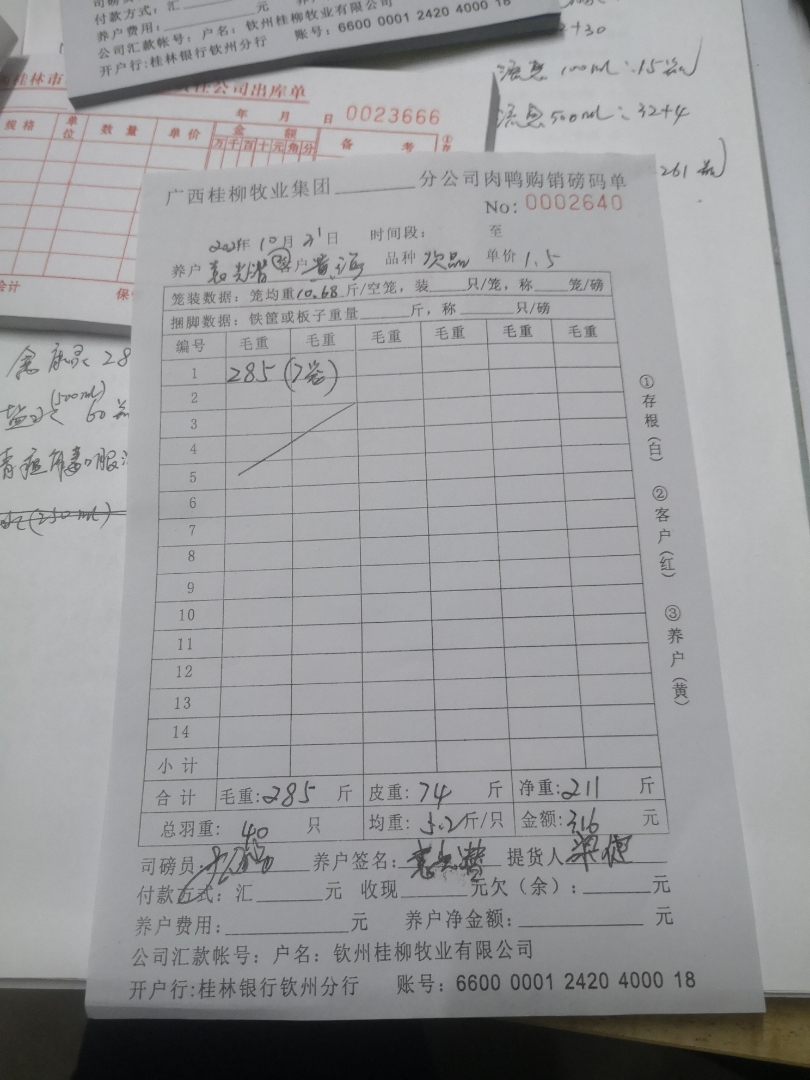 付款方式：汇 元
养户费用： 元
公司汇款帐号：户名：钦州桂柳牧业有限公司
开户行:桂林银行钦州分行 账号：6600 0001 2420 4000 18
+30
100ml：15
500ml：32+4
261
桂林市 公司出库单
年 月 日 0023666
规格 单位 数量 单价 金额 备考
万千百十元角分
会计 保
28
(500ml)
60
(250ml)
广西桂柳牧业集团________分公司肉鸭购销磅码单
No: 0002640
10月21日 时间段： 至
养户 户 品种 次品 单价 1.5
笼装数据：笼均重10.68斤/空笼，装____只/笼，称____笼/磅
捆脚数据：铁筐或板子重量______斤，称______只/磅
编号 毛重 毛重 毛重 毛重 毛重 毛重
1 285 (7笼)
2
3
4
5
6
7
8
9
10
11
12
13
14
小计
合计 毛重:285 斤 皮重:74 斤 净重:211 斤
总羽重：40 只 均重：5.2斤/只 金额:316 元
司磅员: 养户签名: 提货人
付款方式：汇______元 收现______元欠（余）：______元
养户费用：__________元 养户净金额：__________元
公司汇款帐号：户名：钦州桂柳牧业有限公司
开户行:桂林银行钦州分行 账号：6600 0001 2420 4000 18
①存根（白） ②客户（红） ③养户（黄）